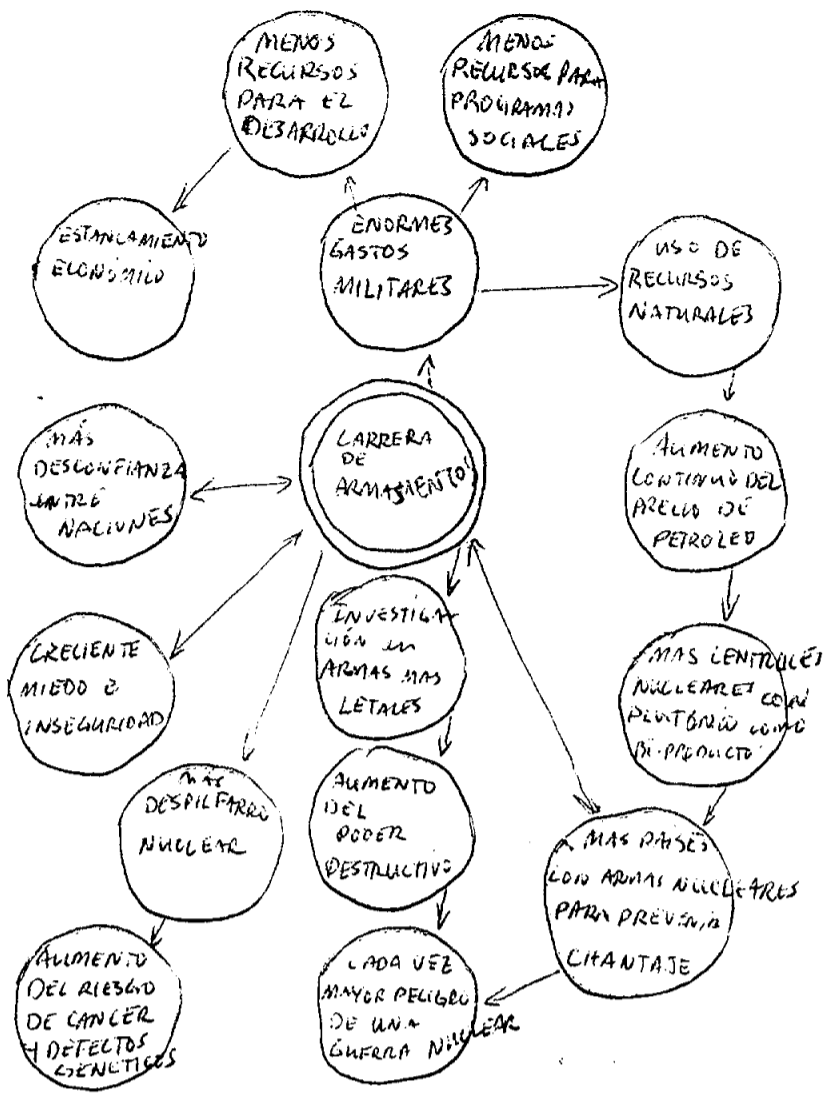 MENOS
RECURSOS
PARA EL
DESARROLLO
MENOS
RECURSOS PARA
PROGRAMAS
SOCIALES
ESTANCAMIENTO
ECONÓMICO
ENORMES
GASTOS
MILITARES
USO DE
RECURSOS
NATURALES
MÁS
DESCONFIANZA
ENTRE
NACIONES
CARRERA
DE
ARMAMENTOS
AUMENTO
CONTINUO DEL
PRECIO DE
PETROLEO
CRECIENTE
MIEDO E
INSEGURIDAD
INVESTIGA-
CIÓN en
ARMAS MAS
LETALES
MAS CENTRALES
NUCLEARES con
PLUTONIO como
BI-PRODUCTO
MAS
DESPILFARRO
NUCLEAR
AUMENTO
DEL
PODER
DESTRUCTIVO
MAS PAISES
CON ARMAS NUCLEARES
PARA PREVENIR
CHANTAJE
AUMENTO
DEL RIESGO
DE CANCER
Y DEFECTOS
GENETICOS
CADA VEZ
MAYOR PELIGRO
DE UNA
GUERRA NUCLEAR